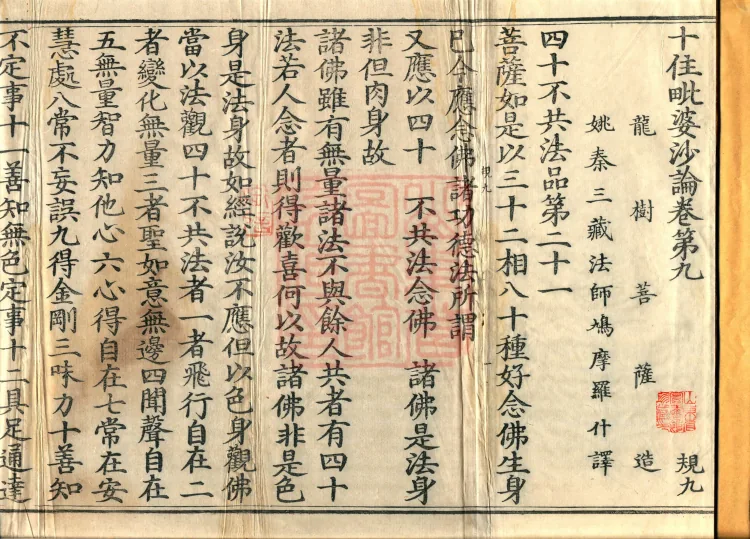 十住毗婆沙論卷第九
規九
龍樹菩薩造
姚秦三藏法師鳩摩羅什譯
四十不共法品第二十一
菩薩如是以三十二相八十種好念佛生身
已今應念佛諸功德法所謂
規九
又應以四十 不共法念佛 諸佛是法身
非但肉身故
諸佛雖有無量諸法不與餘人共者有四十
法若人念者則得歡喜何以故諸佛非是色
身是法身故如經說汝不應但以色身觀佛
當以法觀四十不共法者一者飛行自在二
者變化無量三者聖如意無邊四聞聲自在
五無量智力知他心六心得自在七常在安
慧處八常不妄誤九得金剛三昧力十善知
不定事十一善知無色定事十二具足通達